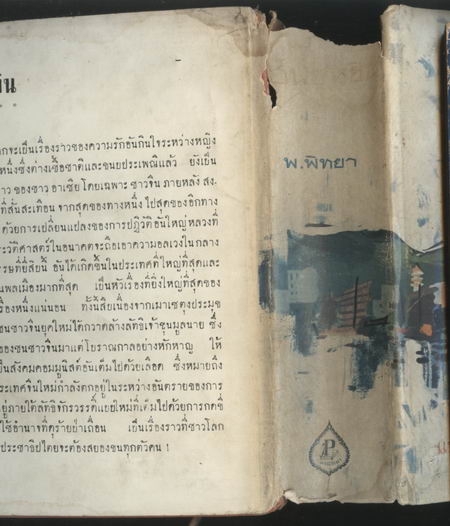 กจะเป็นเรื่องราวของความรักอันกินใจระหว่างหญิง
หนึ่งซึ่งต่างเชื้อชาติและขนบประเพณีแล้ว ยังเป็น
าว ของชาว อาเซีย โดยเฉพาะ ชาวจีน ภายหลัง สง.
ที่สั่นสะเทือน จากสุดของทางหนึ่ง ไปสุดของอีกทาง
ด้วยการเปลี่ยนแปลงของการปฏิวัติอันใหญ่หลวงที่
ะวัติศาสตร์ในอนาคตจะถือเอาความอลเวงในกลาง
รรษที่ยี่สิบนี้ อันได้เกิดขึ้นในประเทศที่ใหญ่ที่สุดและ
นพลเมืองมากที่สุด เป็นหัวเรื่องที่ยิ่งใหญ่ที่สุดของ
รื่องหนึ่งแน่นอน ทั้งนี้สืบเนื่องจากเมาเซตุงประมุข
ชนชาวจีนยุคใหม่ได้กวาดล้างลัทธิเจ้าขุนมูลนาย ซึ่ง
ของชนชาวจีนมาแต่โบราณกาลอย่างหักหาญ ให้
ป็นสังคมคอมมูนิสต์อันเต็มไปด้วยเลือด ซึ่งหมายถึง
ระเทศจีนใหม่กำลังตกอยู่ในระหว่างอันตรายของการ
ยู่ภายใต้ลัทธิจักรวรรดิ์แบบใหม่ที่เต็มไปด้วยการกดขี่
ใช้อำนาจที่ดุร้ายป่าเถื่อน เป็นเรื่องราวที่ชาวโลก
ประชาธิปไตยจะต้องสยองขนทุกตัวคน !
พ.พิทยา
P